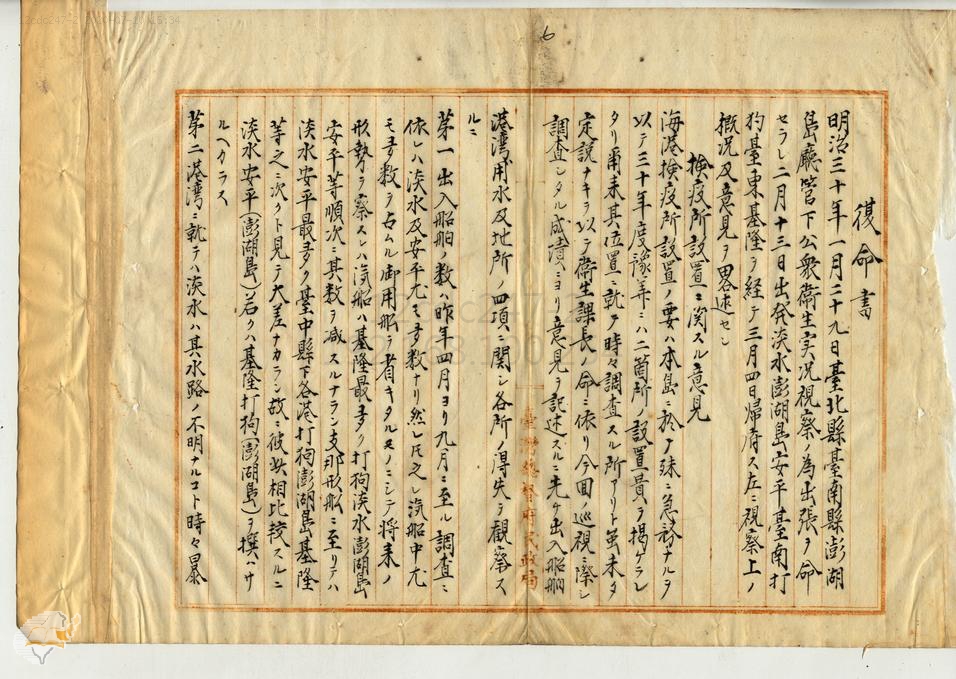 復命書
明治三十年一月二十九日臺北縣臺南縣澎湖
島廳管下公衆衛生実况視察ノ為出張ヲ命
セラレ二月十三日出発淡水澎湖島安平臺南打
狗臺東基隆ヲ経テ三月四日帰府ス左ニ視察上ノ
概况及意見ヲ畧述セン
検疫所設置ニ関スル意見
海港検疫所設置ノ要ハ本島ニ於テ殊ニ急務ナルヲ
以テ三十年度豫算ニハ二箇所ノ設置費ヲ掲ケラレ
タリ爾来其位置ニ就テ時々調査スル所アリト虽未タ
定説ナキヲ以テ衛生課長ノ命ニ依リ今回ノ巡視ニ際シ
調査シタル成績ニヨリ意見ヲ記述スルニ先ケ出入船舶
港湾用水及地所ノ四項ニ関シ各所ノ得失ヲ観察ス
ルニ
第一出入船舶ノ数ハ昨年四月ヨリ九月ニ至ル調査ニ
依レハ淡水及安平尤モ多数ナリ然レ𪜈之レ汽船中尤
モ多数ヲ占ムル御用船ヲ省キタルモノニシテ将来ノ
形勢ヲ察スレハ汽船ハ基隆最多ク打狗淡水澎湖島
安平等順次ニ其数ヲ减スルナラン支那形船ニ至リテハ
淡水安平最多ク臺中縣下各港打狗澎湖島基隆
等之ニ次クト見テ大差ナカラン故ニ彼此相比較スルニ
淡水安平(澎湖島)若クハ基隆打狗(澎湖島)ヲ撰ハサ
ルヘカラス
第二港湾ニ就テハ淡水ハ其水路ノ不明ナルコト時々暴
臺灣総督府民政局
6